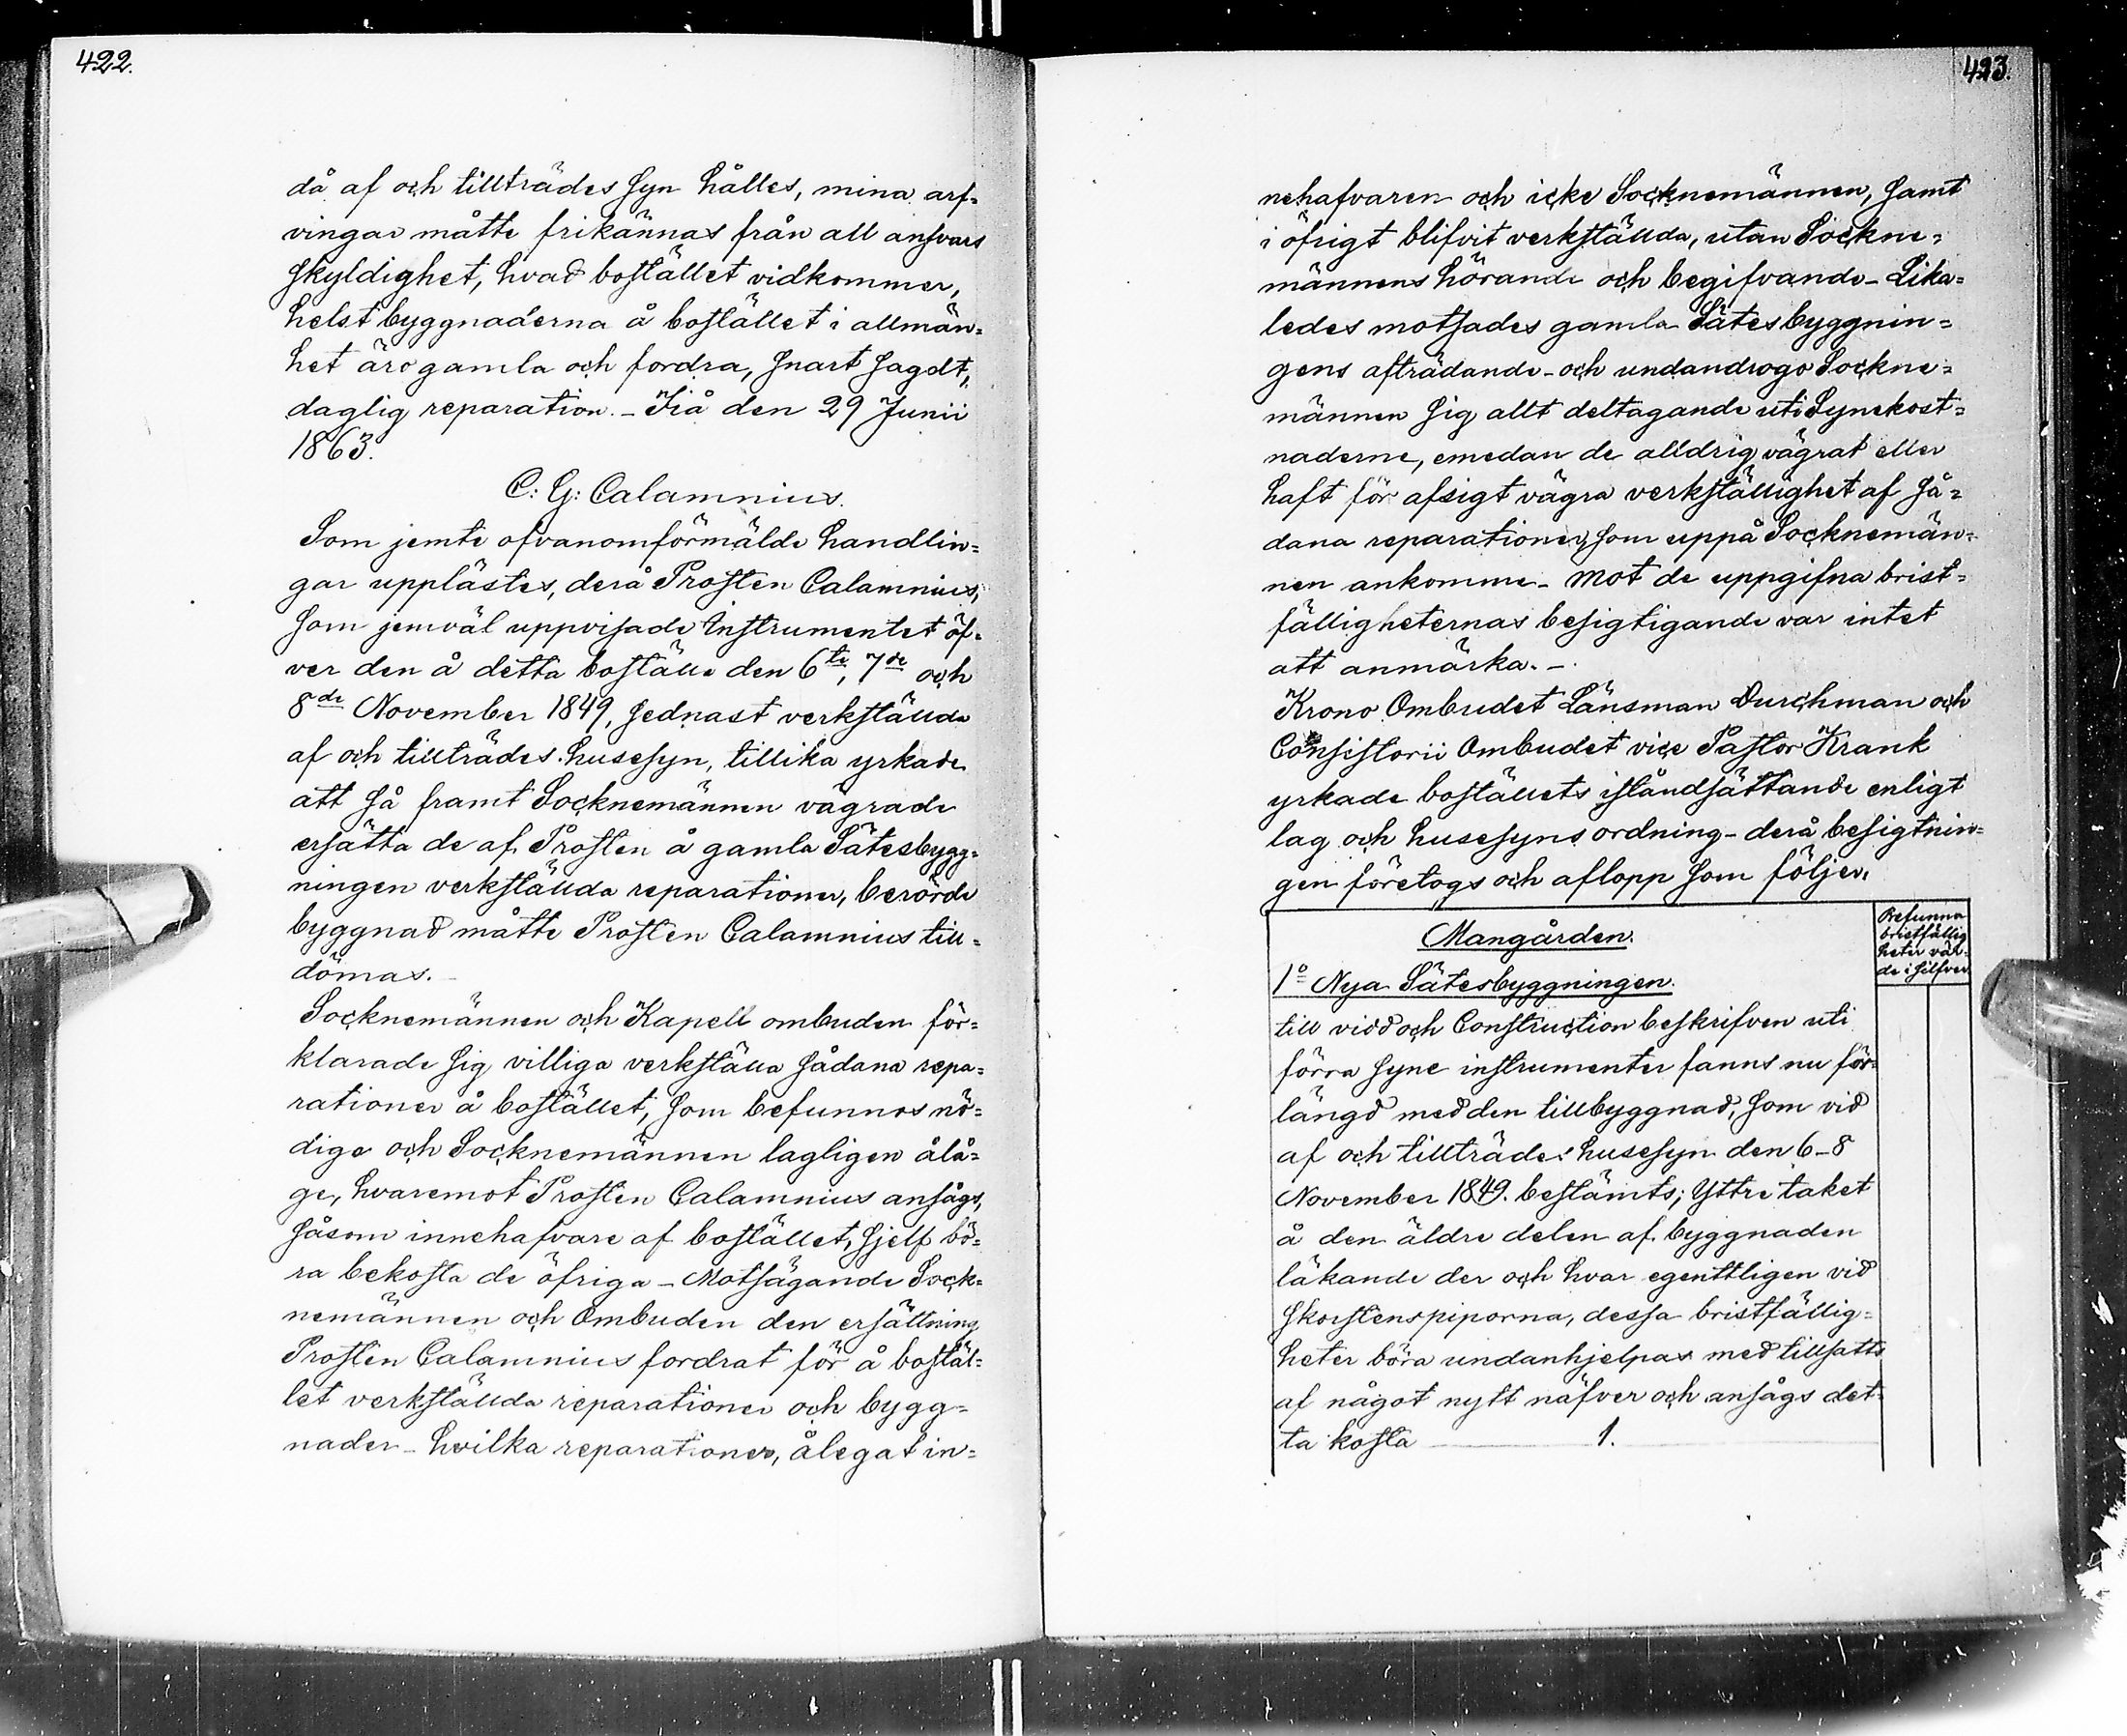 422.
då af och tillträdes syn hålles, mina arf=
vingar måtte frikännas från all ansvars
skyldighet, hvad bostället vidkommer,
helst byggnaderna å bostället i allmän=
het äro gamla och fordra, snart sagdt,
daglig reparation. – Jiå den 29 Junii
1863.
C: G: Calamnius.
Som jemte ofvanomförmälde handlin=
gar upplästes, derå Prosten Calamnius,
som jemväl uppvisade Instrumentet öf=
ver den å detta boställe den 6te, 7de och
8de November 1849, sednast verkställda
af och tillträdes husesyn, tillika yrkade
att så framt Socknemännen vägrade
ersätta de af Prosten å gamla Sätesbygg=
ningen verkställda reparationer, berörde
byggnad måtte Prosten Calamnius till=
dömas. –
Socknemännen och Kapell ombuden för=
klarade sig villiga verkställa sådana repa=
rationer å bostället, som befunnos nö=
dige och Socknemännen lagligen ålå=
ge, hvaremot Prosten Calamnius ansågs,
såsom innehafvare af bostället, sjelf bö=
ra bekosta de öfriga – Motsägande Sock=
nemännen och Ombuden den ersättning
Prosten Calamnius fordrat för å bostäl=
let verkställda reparationer och bygg=
nader – hvilka reparationer, ålegat in=
423.
nehafvaren och icke Socknemännen, samt
i öfrigt blifvit verkställda, utan Sockne=
männens hörande och begifvande – Lika=
ledes motsades gamla Sätesbyggnin=
gens afträdande – och undandrogo Sockne=
männen sig allt deltagande uti Synekost=
naderne, emedan de alldrig vägrat eller
haft för afsigt vägra verkställighet af så=
dana reparationer, som uppå Socknemän=
nen ankomme – Mot de uppgifna brist=
fälligheternas besigtigande var intet
att anmärka. –
Krono Ombudet Länsman Durchman och
Consistorii Ombudet vice Pastor Krank
yrkade boställets iståndsättande enligt
lag och husesyns ordning – derå besigtnin=
gen företogs och aflopp som följer.
Befunna
bristfällig
heter vär=
de i silfver
Mangården.
1o Nya Sätesbyggningen.
till vidd och Construction beskrifven uti
förra syne instrumenter fanns nu för=
längd med den tillbyggnad, som vid
af och tillträdes husesyn den 6–8
November 1849. bestämts; Yttre taket
å den äldre delen af byggnaden
läkande der och hvar egenttligen vid
skorstenspiporna, dessa bristfällig=
heter böra undanhjelpas med tillsatts
af något nytt näfver och ansågs det=
ta kosta 1.